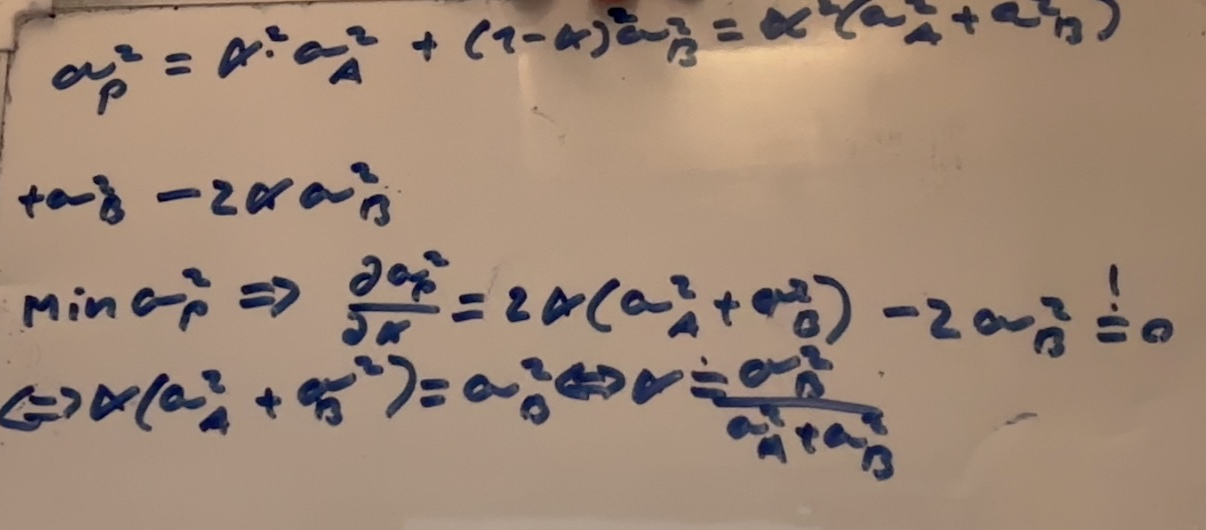 σ_P² = α² σ_A² + (1-α)² σ_B² = α² (σ_A² + σ_B²)
+ σ_B² - 2α σ_B²
Min σ_P² ⇒ ∂σ_P²/∂α = 2α(σ_A² + σ_B²) - 2σ_B² =! 0
⇔ α(σ_A² + σ_B²) = σ_B² ⇔ α = σ_B²/(σ_A² + σ_B²)